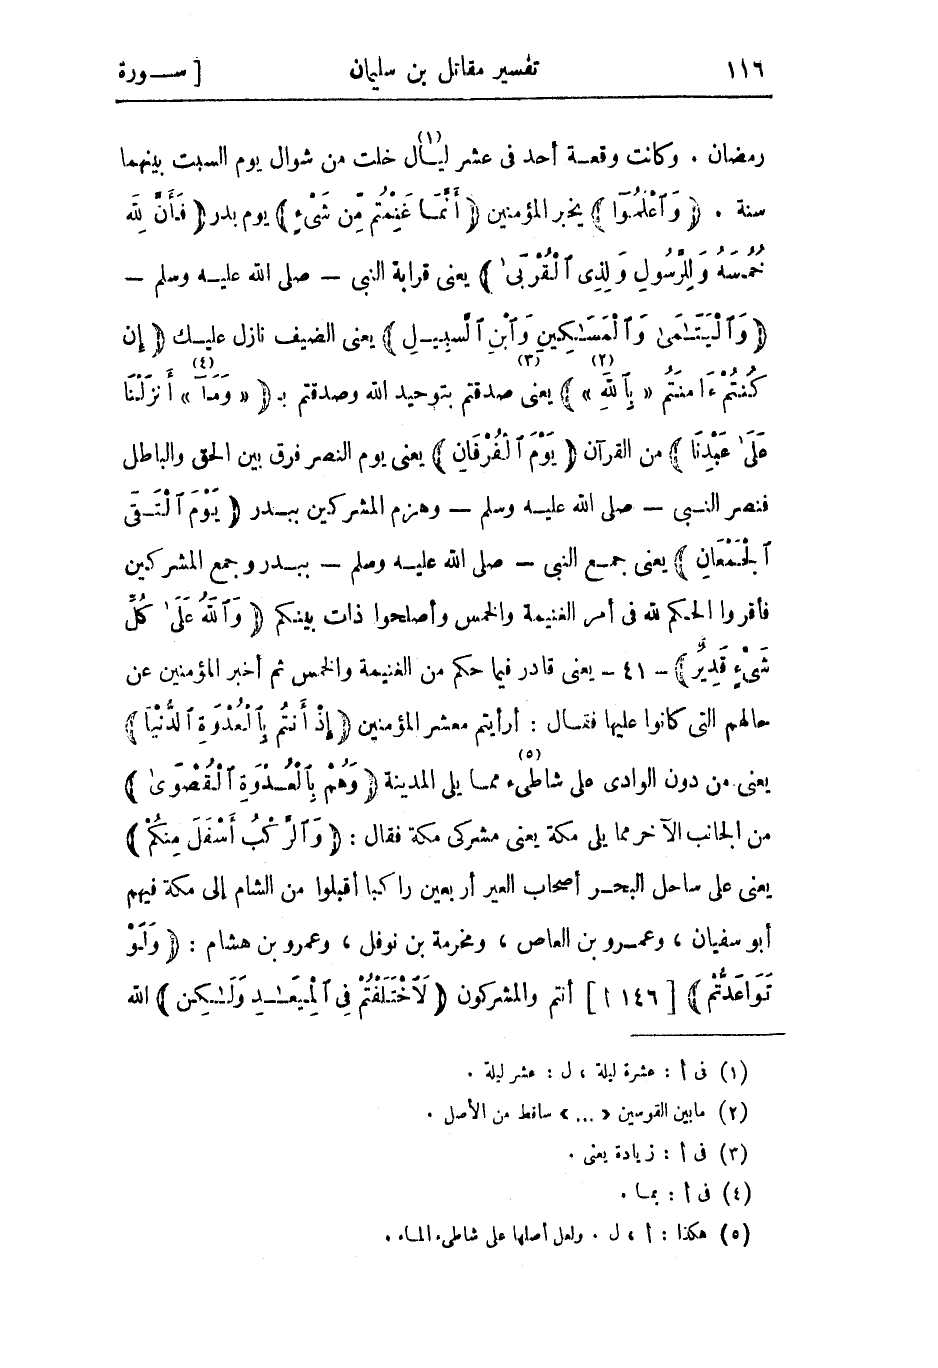 ١١٦ تفسير مقاتل بن سليمان [ ســورة
رمضان . وكانت وقعـة أحد فى عشر ليـال (١) خلت من شوال يوم السبت بينهما
سنة . ﴿ وَٱعْلَمُوٓا۟ ﴾ يخبر المؤمنين ﴿ أَنَّمَا غَنِمْتُم مِّن شَىْءٍ ﴾ يوم بدر ﴿ فَأَنَّ لِلَّهِ
خُمُسَهُ وَلِلرَّسُولِ وَلِذِى ٱلْقُرْبَىٰ ﴾ يعنى قرابة النبى – صلى الله عليـه وسلم –
﴿ وَٱلْيَتَـٰمَىٰ وَٱلْمَسَـٰكِينِ وَٱبْنِ ٱلسَّبِيـلِ ﴾ يعنى الضيف نازل عليـك ﴿ إِن
كُنتُمْ ءَامَنتُم « بِٱللَّهِ » (٢) ﴾ يعنى (٣) صدقتم بتوحيد الله وصدقتم بـ ﴿ « وَمَآ » (٤) أَنزَلْنَا
عَلَىٰ عَبْدِنَا ﴾ من القرآن ﴿ يَوْمَ ٱلْفُرْقَانِ ﴾ يعنى يوم النصر فرق بين الحق والباطل
فنصر النـبى – صلى الله عليـه وسلم – وهزم المشركين ببـدر ﴿ يَوْمَ ٱلْتَـقَى
ٱلْجَمْعَانِ ﴾ يعنى جمـع النبى – صلى الله عليـه وسلم – ببـدر وجمع المشركين
فأقروا الحكم لله فى أمر الغنيمة والخمس وأصلحوا ذات بينكم ﴿ وَٱللَّهُ عَلَىٰ كُلِّ
شَىْءٍ قَدِيرٌ ﴾ – ٤١ – يعنى قادر فيما حكم من الغنيمة والخمس ثم أخبر المؤمنين عن
حالهم التى كانوا عليها فقـال : أرأيتم معشر المؤمنين ﴿ إِذْ أَنتُم بِٱلْعُدْوَةِ ٱلدُّنْيَا ﴾
يعنى من دون الوادى على شاطىء (٥) ممـا يلى المدينة ﴿ وَهُمْ بِٱلْعُـدْوَةِ ٱلْقُصْوَىٰ ﴾
من الجانب الآخر مما يلى مكة يعنى مشركى مكة فقال : ﴿ وَٱلرَّكْبُ أَسْفَلَ مِنكُمْ ﴾
يعنى على ساحل البحـر أصحاب العير أربعين راكبا أقبلوا من الشام إلى مكة فيهم
أبو سفيان ، وعمـرو بن العاص ، ومخرمة بن نوفل ، وعمرو بن هشام : ﴿ وَلَوْ
تَوَاعَدتُّمْ ﴾ [ ١٤٦ أ ] أنتم والمشركون ﴿ لَٱخْتَلَفْتُمْ فِى ٱلْمِيعَـٰـدِ وَلَـٰكِن ﴾ الله
(١) فى أ : عشرة ليلة ، ل : عشر ليلة .
(٢) مابين القوسين « ... » ساقط من الأصل .
(٣) فى أ : زيادة يعنى .
(٤) فى أ : بمـا .
(٥) هكذا : أ ، ل . ولعل أصلها على شاطىء المـاء .